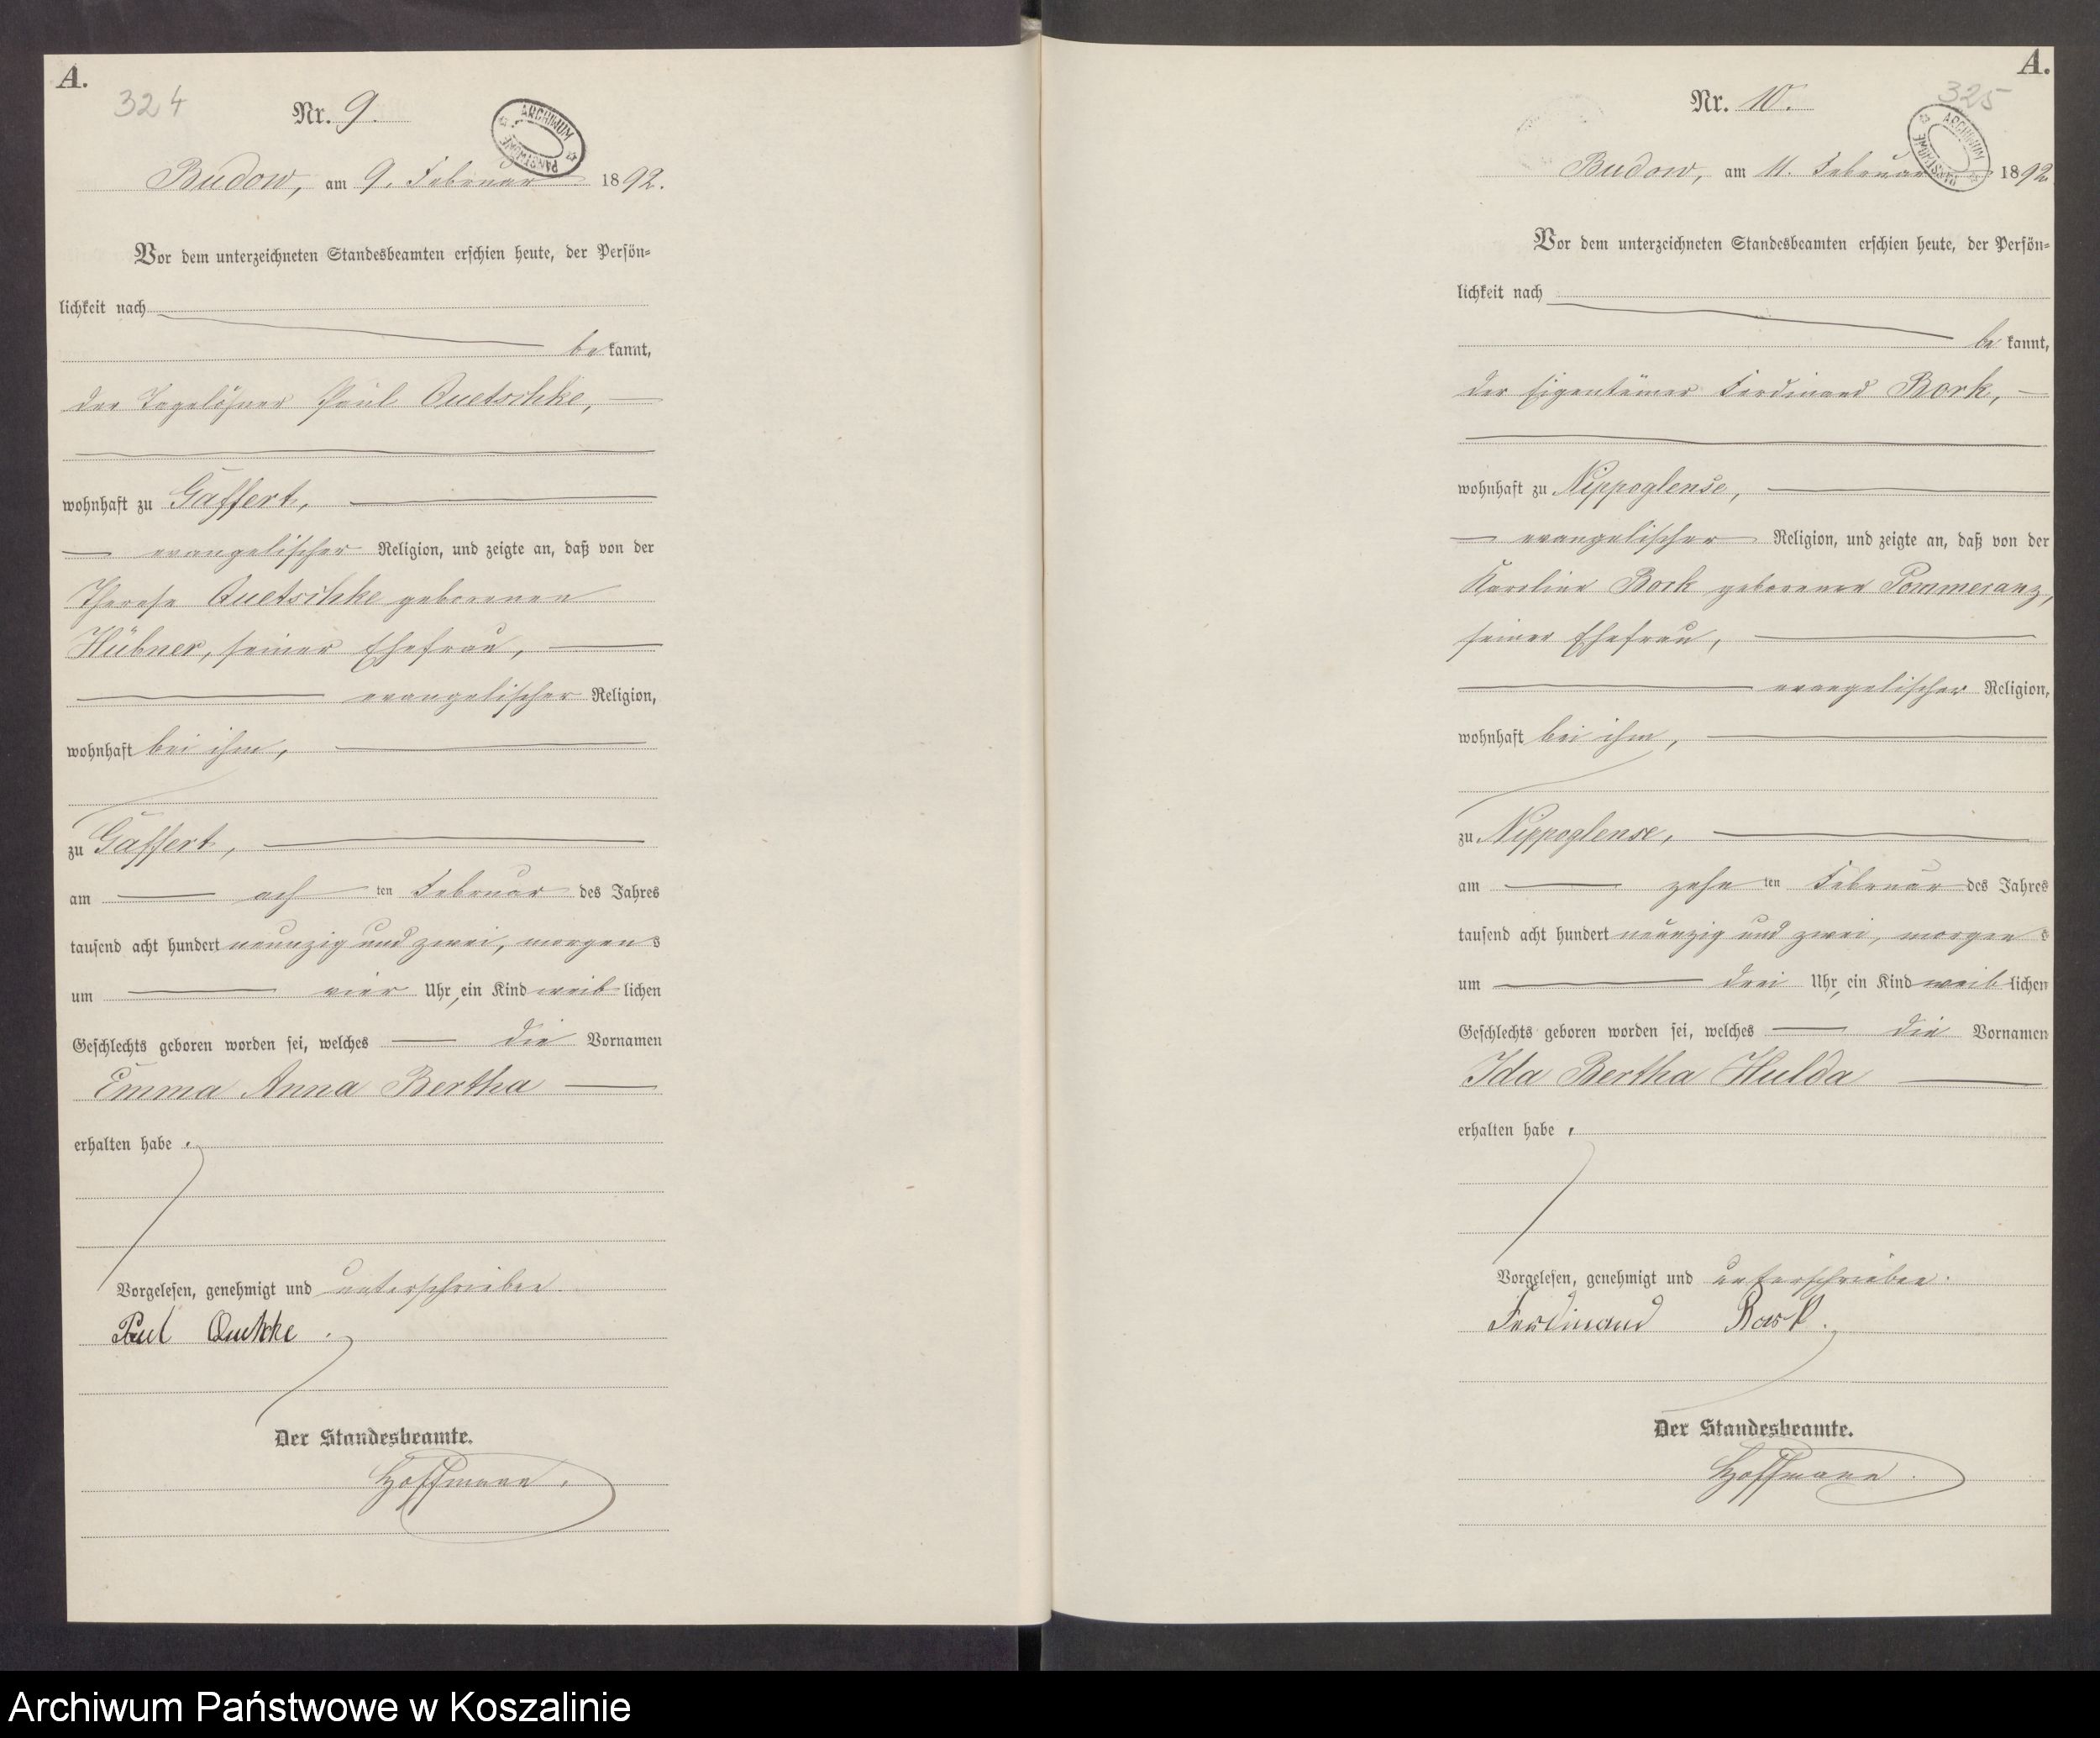 A.
324
Nr. 9.
ARCHIWUM PAŃSTWOWE
Budow, am 9. Februar 1892.
Vor dem unterzeichneten Standesbeamten erschien heute, der Persön-
lichkeit nach
bekannt,
der Tagelöhner Paul Quetschke,
wohnhaft zu Gaffert,
evangelischer Religion, und zeigte an, daß von der
Therese Quetschke geborenen
Hübner, seiner Ehefrau,
evangelischer Religion,
wohnhaft bei ihm,
zu Gaffert,
am achten Februar des Jahres
tausend acht hundert neunzig und zwei, morgens
um vier Uhr, ein Kind weiblichen
Geschlechts geboren worden sei, welches die Vornamen
Emma Anna Bertha
erhalten habe.
Vorgelesen, genehmigt und unterschrieben.
Paul
Der Standesbeamte.
Hoffmann.
A.
325
Nr. 10.
ARCHIWUM PAŃSTWOWE
Budow, am 11. Februar 1892
Vor dem unterzeichneten Standesbeamten erschien heute, der Persön-
lichkeit nach
bekannt,
der Eigentümer Ferdinand Bork,
wohnhaft zu Nippoglense,
evangelischer Religion, und zeigte an, daß von der
Karoline Bork geborenen Pommeranz,
seiner Ehefrau,
evangelischer Religion,
wohnhaft bei ihm,
zu Nippoglense,
am zehnten Februar des Jahres
tausend acht hundert neunzig und zwei, morgens
um drei Uhr, ein Kind weiblichen
Geschlechts geboren worden sei, welches die Vornamen
Ida Bertha Hulda
erhalten habe.
Vorgelesen, genehmigt und unterschrieben.
Ferdinand Bork.
Der Standesbeamte.
Hoffmann.
Archiwum Państwowe w Koszalinie